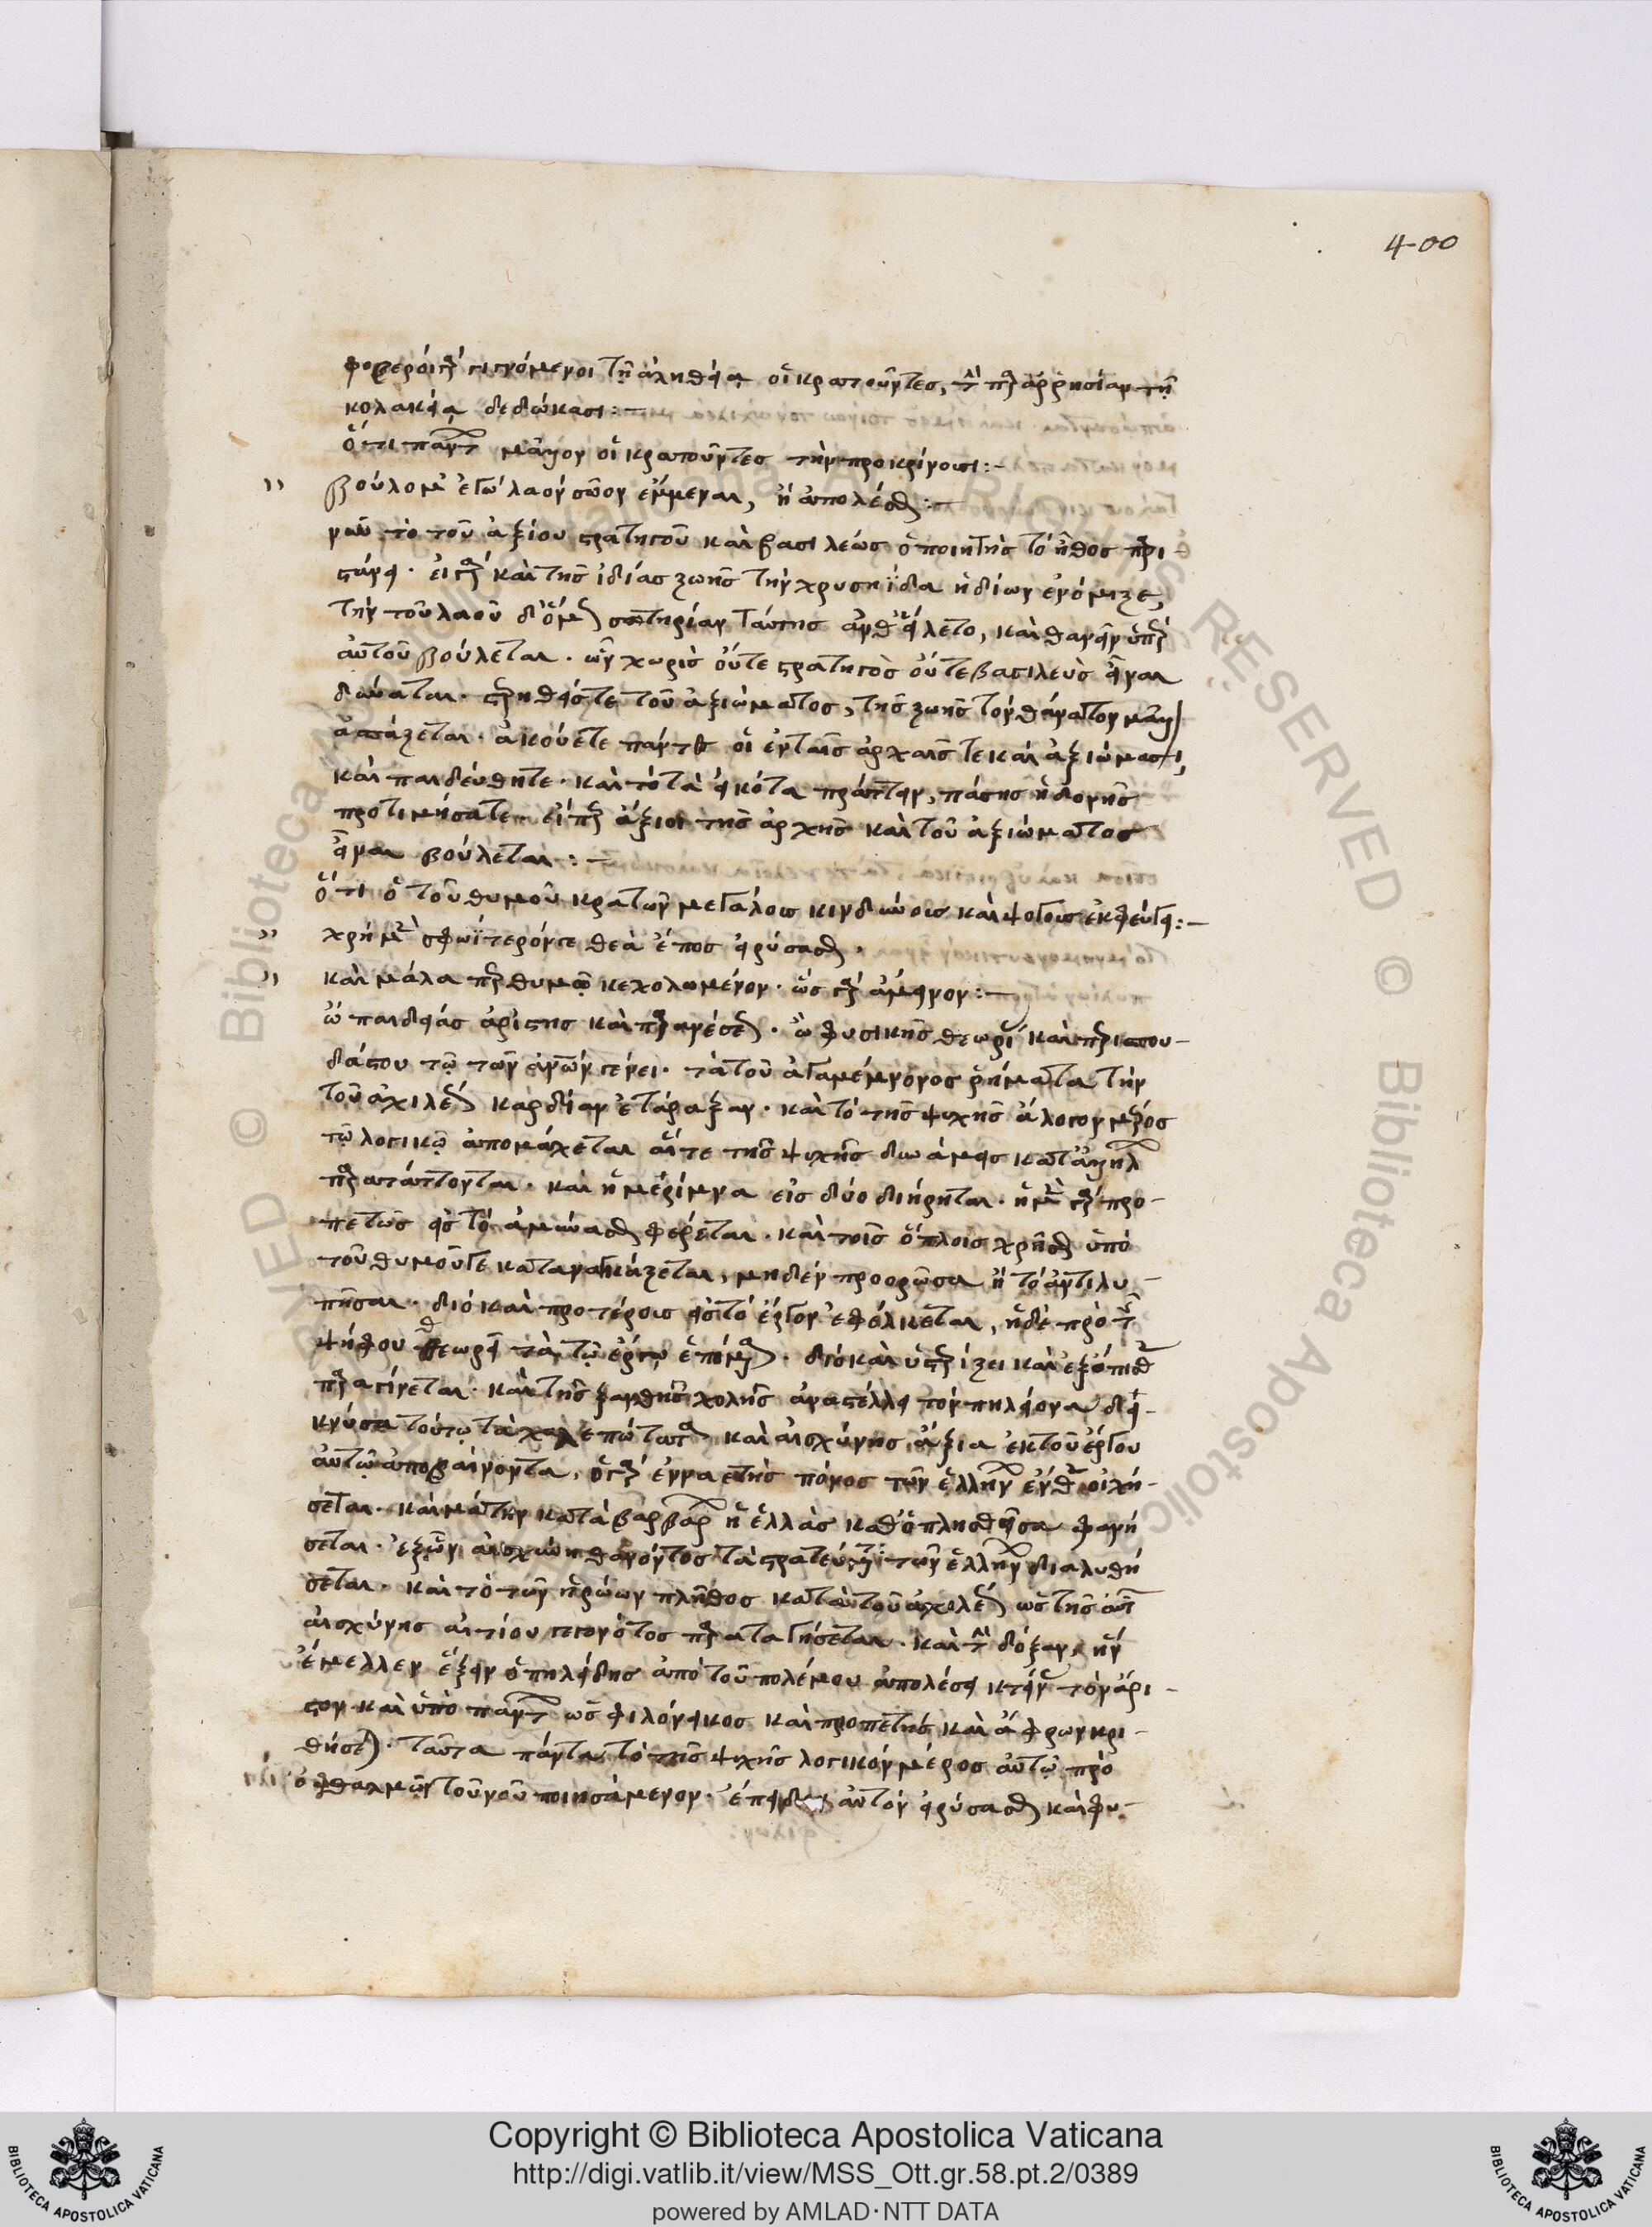 4-00
φοβεροὶ γὰρ γιγνόμενοι τῇ ἀληθείᾳ οἱ κρατοῦντες, τὴν παρρησίαν τῇ
κολακείᾳ δεδώκασι:-
ὅτι πάντων μᾶλλον οἱ κρατοῦντες τὴν προκρίνουσι:-
" βούλομ' ἐγὼ λαὸν σῶον ἔμμεναι, ἢ ἀπολέσθαι:-
νῦν τὸ τοῦ ἀξίου στρατηγοῦ καὶ βασιλέως ὁ ποιητὴς τὸ ἦθος παρι-
στάνει. εἰ γὰρ καὶ τῆς ἰδίας ζωῆς τὴν χρυσηΐδα ἡδίων ἐνόμιζε,
τὴν τοῦ λαοῦ δ' ὅμως σωτηρίαν ταύτης ἀνθείλετο, καὶ θανεῖν ὑπὲρ
αὐτοῦ βούλεται. ὧν χωρὶς οὔτε στρατηγὸς οὔτε βασιλεὺς εἶναι
δύναται. στερηθείς τε τοῦ ἀξιώματος, τῆς ζωῆς τὸν θάνατον μᾶλλον
ἀσπάζεται. ἀκούετε πάντες οἱ ἐν ταῖς ἀρχαῖς τε καὶ ἀξιώμασι,
καὶ παιδεύθητε. καὶ τὸ τὰ εἰκότα πράττειν, πάσης ἡδονῆς
προτιμήσατε εἴπερ ἄξιοι τῆς ἀρχῆς καὶ τοῦ ἀξιώματος
εἶναι βούλεται:-
ὅτι ὁ τοῦ θυμοῦ κρατῶν μεγάλοις κινδύνοις καὶ ψόγοις ἐκφεύγει:-
" χρὴ μὲν σφωΐτερόν γε θεὰ ἔπος εἰρύσασθαι.
" καὶ μάλα περ θυμῷ κεχολωμένον. ὣς γὰρ ἄμεινον:-
ὢ παιδείας ἀρίστης καὶ παραινέσεως. ὢ φυσικῆς θεωρίας καὶ περισπου-
δάστου τῷ τῶν ἀνθρώπων γένει. τὰ τοῦ ἀγαμέμνονος ῥήματα τὴν
τοῦ ἀχιλέως καρδίαν ἐτάραξαν. καὶ τὸ τῆς ψυχῆς ἄλογον μέρος
τῷ λογικῷ ἀπομάχεται αἵ τε τῆς ψυχῆς δυνάμεις κατ' ἀλλήλων
παρατάττονται. καὶ ἡ μέριμνα εἰς δύο διῄρηται. ἡ μὲν γὰρ προ-
πετῶς εἰς τὸ ἀμύνασθαι φέρεται. καὶ τοῖς ὅπλοις χρῆσθαι ὑπὸ
τοῦ θυμοῦ γε καταναγκάζεται, μηδὲν προορῶσα ἢ τὸ ἀντιλυ-
πῆσαι. διὸ καὶ προτέροις εἰς τὸ ἔργον ἐφέλκεται, ἡ δὲ πρὸ τῆς
ψήφου θεωρεῖ τὰ τῷ ἔργῳ ἑπόμενα. διὸ καὶ ὑστερίζει καὶ ἐξόπισθεν
παραγίνεται. καὶ τῆς ξανθῆς χολῆς ἀναστέλλει τὸν πηλείονα δει-
κνύσα τούτῳ τὰ χαλεπώτατα καὶ αἰσχύνης ἄξια ἐκ τοῦ ἔργου
αὐτῷ ἀποβαίνοντα, ὅ γὰρ ἐνναετὴς πόνος τῶν ἑλλήνων ἐνθένδε οἰχή-
σεται. καὶ μάτην κατὰ βαρβάρων ἡ ἑλλὰς καθοπλισθεῖσα φανή
σεται. ἐξ ὧν αἰσχύνη θανόντος τὰ στρατεύματα τῶν ἑλλήνων διαλυθή
σεται. καὶ τὸ τῶν ἡρώων πλῆθος κατ' αὐτοῦ ἀχιλέως ὡς τῆς αὐτῶν
αἰσχύνης αἰτίου γεγονότος παραταγήσεται. καὶ τὴν δόξαν, ἣν
ἔμελλεν ἕξειν ὁ πηλείδης ἀπὸ τοῦ πολέμου ἀπολέσει κτείνων τὸν ἄρι-
στον καὶ ὑπὸ πάντων ὡς φιλόνεικος καὶ προπετὴς καὶ ἄφρων κρι-
θήσεται. ταῦτα πάντα τὸ τῆς ψυχῆς λογικὸν μέρος αὐτῷ πρὸ
ὀφθαλμῶν τοῦ νοῦ ποιησάμενον. ἔπεισεν αὐτὸν εἰρύσασθαι καὶ φυ-
Copyright © Biblioteca Apostolica Vaticana
http://digi.vatlib.it/view/MSS_Ott.gr.58.pt.2/0389
powered by AMLAD·NTT DATA